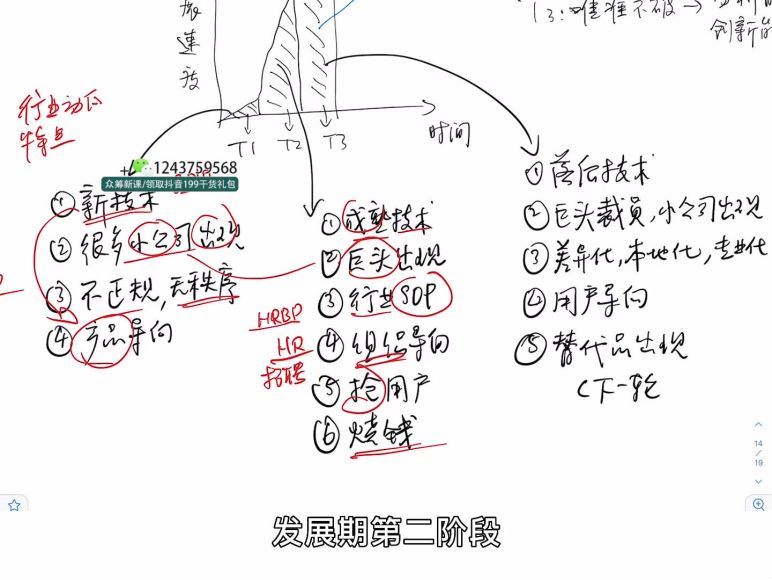 展
速
度
T3:
创新的
T1
T2
T3
时间
行业动态
特点
1243759568
众筹新课/领取抖音199干货礼包
① 新技术
② 很多小公司出现
③ 不正规,无秩序
④ 产品导向
① 成熟技术
② 巨头出现
③ 行业SOP
④ 组织导向
⑤ 抢用户
⑥ 烧钱
HRBP
HR
招聘
① 落后技术
② 巨头裁员,小公司出现
③ 差异化,本地化,专业化
④ 用户导向
⑤ 替代品出现
(下一轮
14
/
19
发展期第二阶段